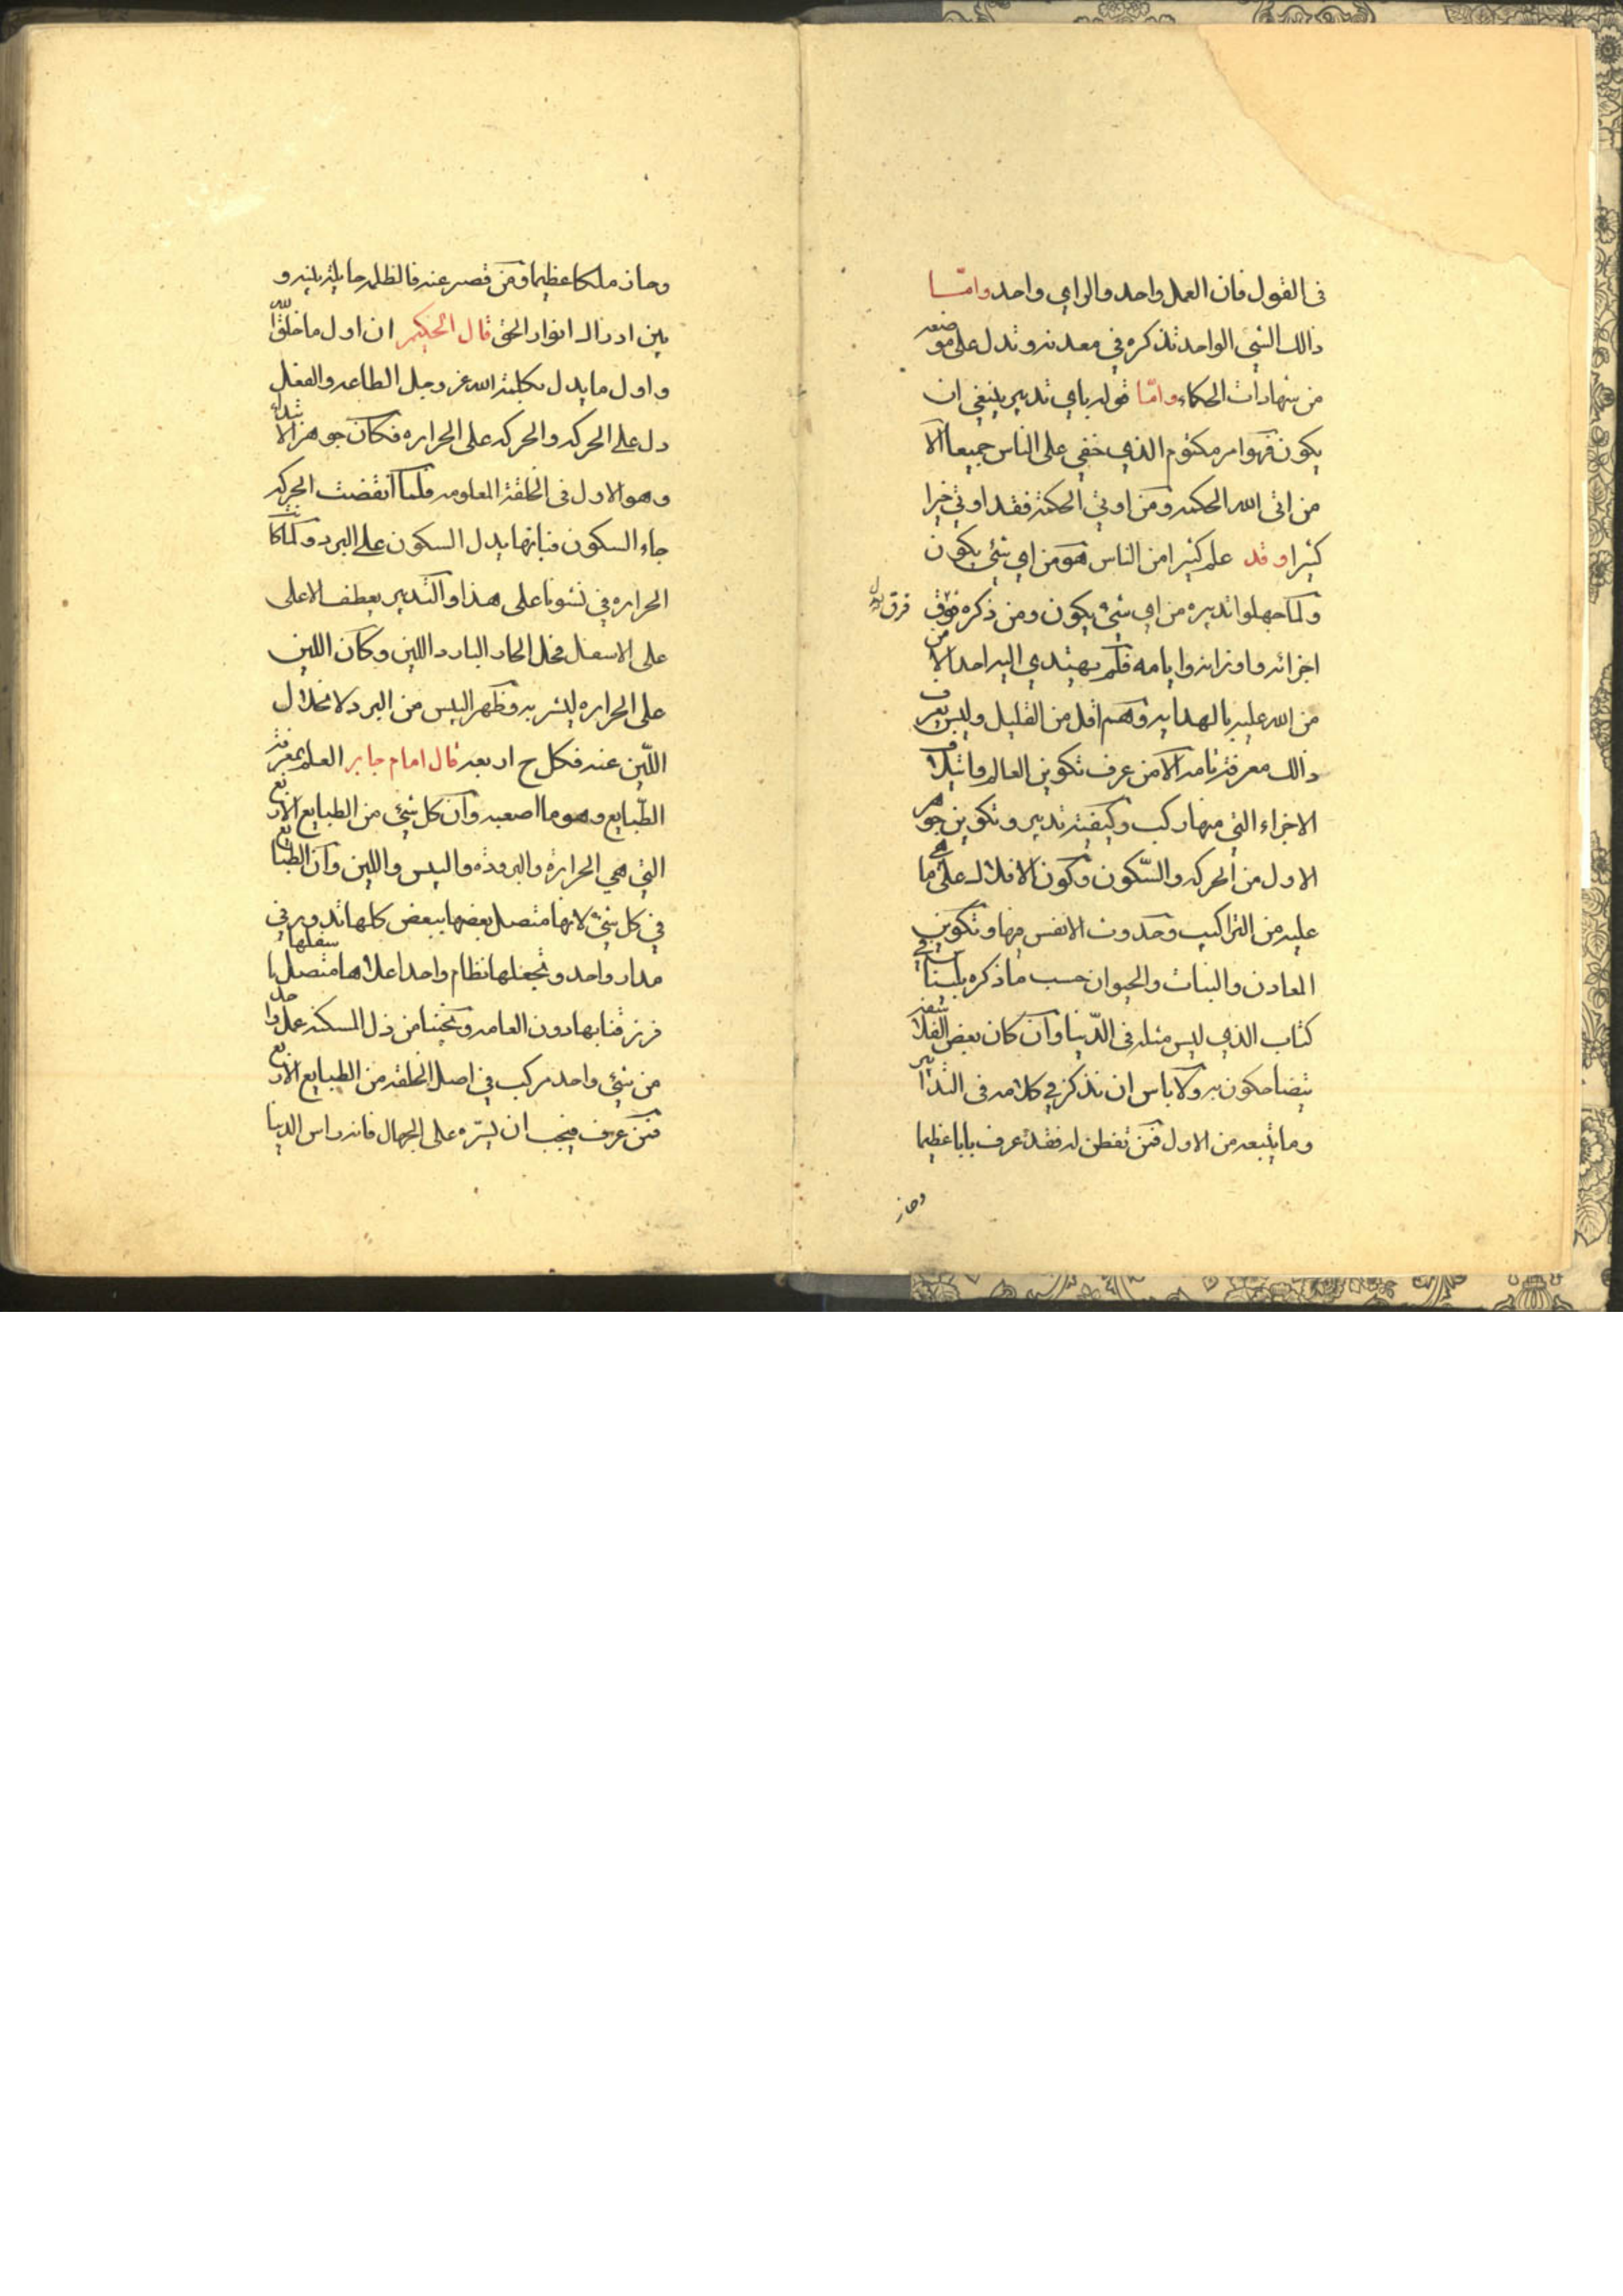 في القول فان العمل واحد والراي واحد وامّا
ذالك الشئ الواحد تذكره في معدنه وتدل على موضعه
من شهادات الحكماء وامّا قوله باي تدبير ينبغي ان
يكون فهو امر مكتوم الذي خفي على الناس جميعا الا
من اتى الله الحكمة ومن اوتي الحكمة فقد اوتي خيرا
كثيرا وقد علم كثيرا من الناس هو من اي شئ يكون
ولما جهلوا تدبيره من اي شئ يكون ومن ذكره فوق
اجزائه واوزانه وايامه فلم يهتدي اليه احد الا من
من الله عليه بالهدايه وهم اقل من القليل وليس يعرف
ذالك معرفة تامه الا من عرف تكوين العالم وائتلاف
الاجزاء التي منها ركب وكيفية تدبير وتكوين جوهر
الاول من الحركه والسّكون وكون الافلاك على ما هي
عليه من التراكيب وحدوث الانفس منها وتكوين
المعادن والنبات والحيوان حسب ماذكره بليناس في
كتاب الذي ليس مثله في الدّنيا وان كان بعض الفلاسفة
يتضاحكون به ولا باس ان نذكر في كلامه في التدابير
وما يتبعه من الاول فمن تفطن له فقد عرف بابا عظيما
وحاز
وحاز ملكا عظيما ومن قصر عنه فالظلمه حايلة بينه و
بين ادراك انوار الحق قال الحكيم ان اول ما خلق الله
واول ما يدل بكلمة الله عز وجل الطاعه والفعل
دل على الحركه والحركه على الحراره فكان جوهر الابتداء
وهو الاول في الخلقة المعلومه فلما انقضت الحركه
جاء السكون فبانها يدل السكون على البرد وكما كانت
الحراره في نشونا على هذا والتدبير يعطف الاعلى
على الاسفل فحل الحار البارد اللين وكان اللين
على الحراره ليشربه وظهر اليبس من البرد لانحلال
اللّين عنه فكل ح اربعه قال امام جابر العلم بمعرفة
الطّبايع وهو ما اصعبه وان كل شئ من الطبايع الاربع
التي هي الحرارة والبرودة واليبس واللين وان الطبايع
في كل شئ لانها متصل بعضها ببعض كلها تدور في
مدار واحد وتجعلها نظام واحد اعلاها متصل باسفلها
فرزقنا بها دون العامه ونجتنا من ذل المسكنه عمل واحد
من شئ واحد مركب في اصل الخلقه من الطبايع الاربع
فمن عرف فيجب ان يسرّه على الجهال فانه راس الدنيا